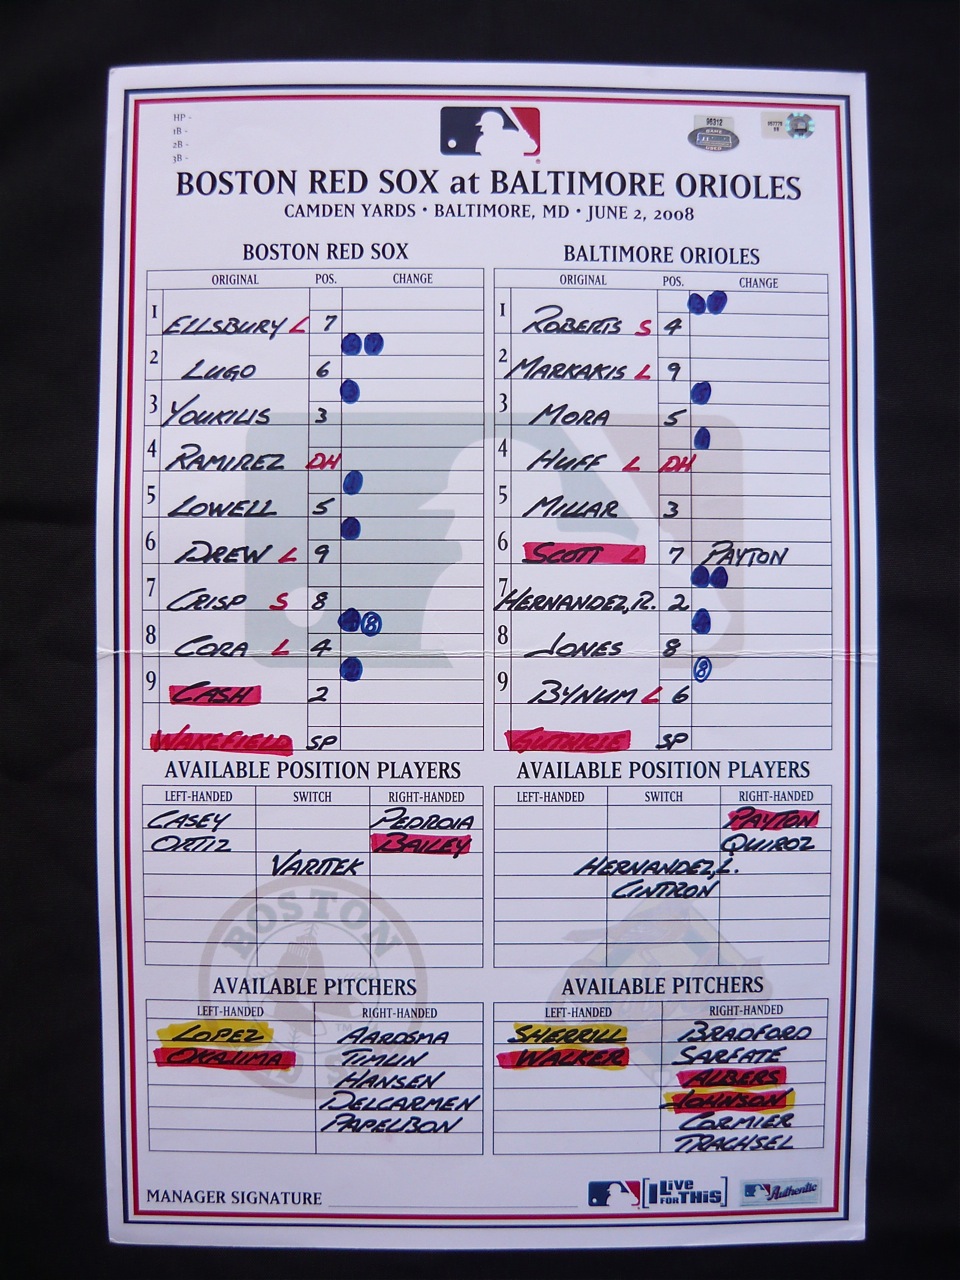 HP -
1B -
2B -
3B -
96312
BOSTON RED SOX at BALTIMORE ORIOLES
CAMDEN YARDS • BALTIMORE, MD • JUNE 2, 2008
BOSTON RED SOX
ORIGINAL POS. CHANGE
1 ELLSBURY L 7
2 LUGO 6
3 YOUKILIS 3
4 RAMIREZ DH
5 LOWELL 5
6 DREW L 9
7 CRISP S 8
8 CORA L 4 8
9 CASH 2
WAKEFIELD SP
BALTIMORE ORIOLES
ORIGINAL POS. CHANGE
1 ROBERTS S 4
2 MARKAKIS L 9
3 MORA 5
4 HUFF L DH
5 MILLAR 3
6 SCOTT L 7 PAYTON
7 HERNANDEZ, R. 2
8 JONES 8
9 BYNUM L 6 8
GUTHRIE SP
AVAILABLE POSITION PLAYERS
LEFT-HANDED SWITCH RIGHT-HANDED
CASEY PEDROIA
ORTIZ BAILEY
VARITEK
AVAILABLE POSITION PLAYERS
LEFT-HANDED SWITCH RIGHT-HANDED
PAYTON
QUIROZ
HERNANDEZ, L.
CINTRON
BOSTON
AVAILABLE PITCHERS
LEFT-HANDED RIGHT-HANDED
LOPEZ AARDSMA
OKAJIMA TIMLIN
HANSEN
DELCARMEN
PAPELBON
AVAILABLE PITCHERS
LEFT-HANDED RIGHT-HANDED
SHERRILL BRADFORD
WALKER SARFATE
ALBERS
JOHNSON
CORMIER
TRACHSEL
MANAGER SIGNATURE
I LIVE FOR THIS
Authentic